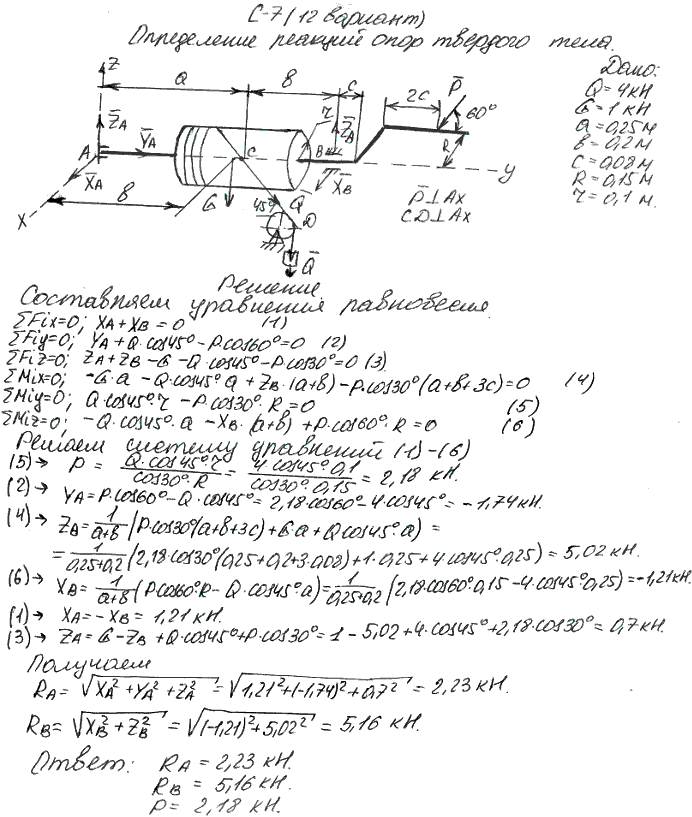 С-7 (12 вариант)
Определение реакций опор твердого тела.
Дано:
Q = 4 кН
G = 1 кН
a = 0,25 м
в = 0,2 м
c = 0,08 м
R = 0,15 м
r = 0,1 м.
P̄ ⊥ Ax
CD ⊥ Ax
z
a
в
c
2c
P̄
60°
Z̄A
ȲA
A
X̄A
x
в
r
Z̄B
B
X̄B
R
y
C
G
45°
Q̄
D
Q̄
Решение
Составляем уравнения равновесия
ΣFix=0; XA + XB = 0 (1)
ΣFiy=0; YA + Q·cos45° - P·cos60° = 0 (2)
ΣFiz=0; ZA + ZB - G - Q·cos45° - P·cos30° = 0 (3)
ΣMix=0; -G·a - Q·cos45°·a + ZB·(a+в) - P·cos30°(a+в+3c) = 0 (4)
ΣMiy=0; Q·cos45°·r - P·cos30°·R = 0 (5)
ΣMiz=0; -Q·cos45°·a - XB·(a+в) + P·cos60°·R = 0 (6)
Решаем систему уравнений (1)-(6)
(5)→ P = Q·cos45°·r / cos30°·R = 4·cos45°·0,1 / cos30°·0,15 = 2,18 кН.
(2)→ YA = P·cos60° - Q·cos45° = 2,18·cos60 - 4·cos45° = -1,74 кН.
(4)→ ZB = 1/(a+в) (P·cos30(a+в+3c) + G·a + Q cos45°·a) =
= 1/(0,25+0,2) (2,18·cos30°(0,25+0,2+3·0,08) + 1·0,25 + 4cos45°·0,25) = 5,02 кН.
(6)→ XB = 1/(a+в) (P·cos60°R - Q·cos45°·a) = 1/(0,25+0,2) (2,18·cos60°·0,15 - 4·cos45°·0,25) = -1,21 кН
(1)→ XA = -XB = 1,21 кН.
(3)→ ZA = G - ZB + Q·cos45° + P·cos30° = 1 - 5,02 + 4·cos45° + 2,18·cos30° = 0,7 кН.
Получаем
RA = √(XA² + YA² + ZA²) = √(1,21² + (-1,74)² + 0,7²) = 2,23 кН.
RB = √(XB² + ZB²) = √((-1,21)² + 5,02²) = 5,16 кН.
Ответ: RA = 2,23 кН.
RB = 5,16 кН.
P = 2,18 кН.